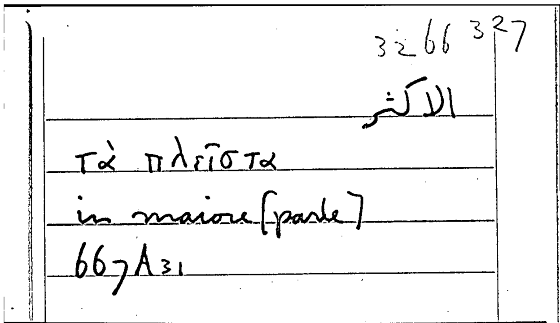 3266 327
الاكثر
τὰ πλεῖστα
in maiore [parte]
667A31